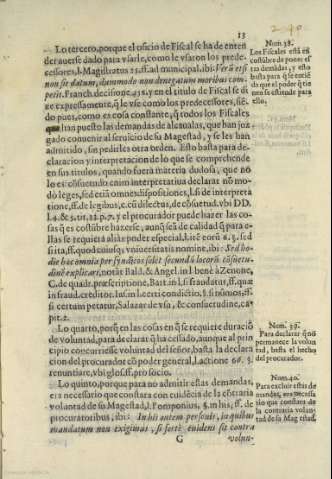 13
Lo tercero, porque el oficio de Fiscal se ha de enten
der auerse dado para vsarle, como le vsaron los prede-
cessores, l. Magistratus 25. ff. ad municipal. ibi: Verū etsi
non sit datum, dummodo non denegatum moribus com-
petit. Franch. decisione 451. y en el titulo de Fiscal se di
ze expressamente, q̄ le vse como los predecessores, siē-
do pues, como es cosa constante, q̄ todos los Fiscales
han puesto las demandas de alcaualas, que han juz
gado conuenir al seruicio de su Magestad, y se les han
admitido, sin pedirles otra orden. Esto basta para de-
claracion y interpretacion de lo que se comprehende
en sus titulos, quando fuera materia dudosa, que no
lo es: cōsuetudo enim interpretatiua declarat nō mo-
dò leges, sed etiā omnes dispositiones, l. si de interpreta
tione, ff. de legibus, c. cū dilectus, de cōsuetud. vbi DD.
l. 4. & 5. tit. 22. p. 7. y el procurador puede hazer las co-
sas q̄ es costūbre hazerse, aunq̄ seā de calidad q̄ para e-
llas se requiera aliàs poder especial,
si ita, ff. quod cuiusq; vniuersitatis nomine, ibi: Sed ho-
die hæc omnia per syndicos solet secundū locorū cōsuetu-
dinē explicare, notāt Bald. & Angel. in l. benè à Zenone,
C. de quadr. præscriptione, Bart. in l. si fraudator, ff. quæ
in fraud. creditor.
si certum petatur, Salazar de vsu, & consuetudine, ca-
pit. 2.
Lo quarto, porq̄ en las cosas en q̄ se requiere duraciō
de voluntad, para declarar q̄ ha cesado, aunque al prin
cipio concurriesse volūntad del señor, basta la declara
cion del procurador cō poder general, l. actione 65. §.
renuntiare, vbi gloss. ff. pro socio.
Lo quinto, porque para no admitir estas demandas,
era necessario que constara con euidēcia de la cōtraria
voluntad de su Magestad, l. Pomponius, §. in his, ff. de
procuratoribus, ibi: In his autem personis, in quibus
mandatum non exigimus, si fortè euidens sit contra
G
volun-
Num. 38.
Los Fiscales està en
costūbre de poner es
tas demādas, y esto
basta para q̄ se entiē
da que el poder q̄ tie
nen se estiende para
ello.
Num. 39.
Para declarar q̄ no
permanece la volun
tad, basta el hecho
del procurador.
Num. 40.
Para excluir estas de
mandas, era necessa
rio que constara de
la contraria volun-
tad de su Magestad.